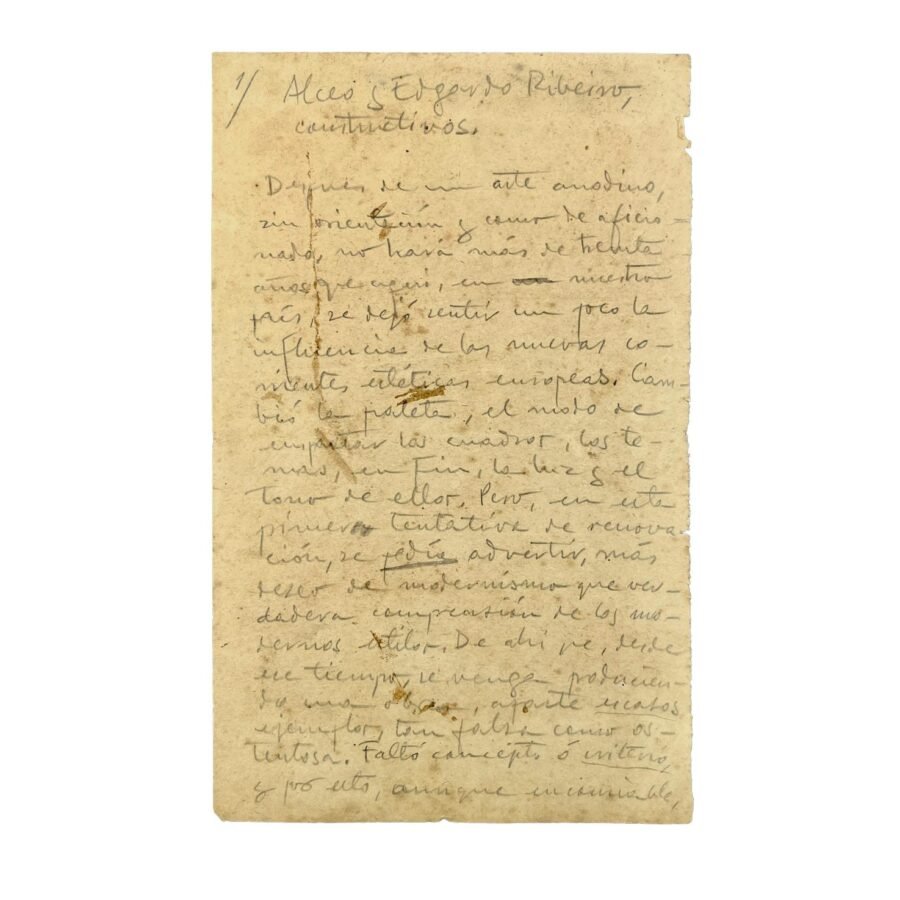 1/ Alceo y Edgardo Ribeiro,
constructivos.
Después de un arte anodino,
sin orientación y como de aficio-
nado, no hará más de treinta
años que aquí, en nuestro
país, se dejó sentir un poco la
influencia de las nuevas co-
rrientes estéticas europeas. Cam-
bió la paleta, el modo de
empastar los cuadros, los te-
mas, en fin, la luz y el
tono de ellos. Pero, en esta
primera tentativa de renova-
ción, se podía advertir, más
deseo de modernismo que ver-
dadera comprensión de los mo-
dernos estilos. De ahí que, desde
ese tiempo, se venga producien-
do una obra, aparte escasos
ejemplos, tan falsa como os-
tentosa. Faltó concepto ó criterio,
y por esto, aunque